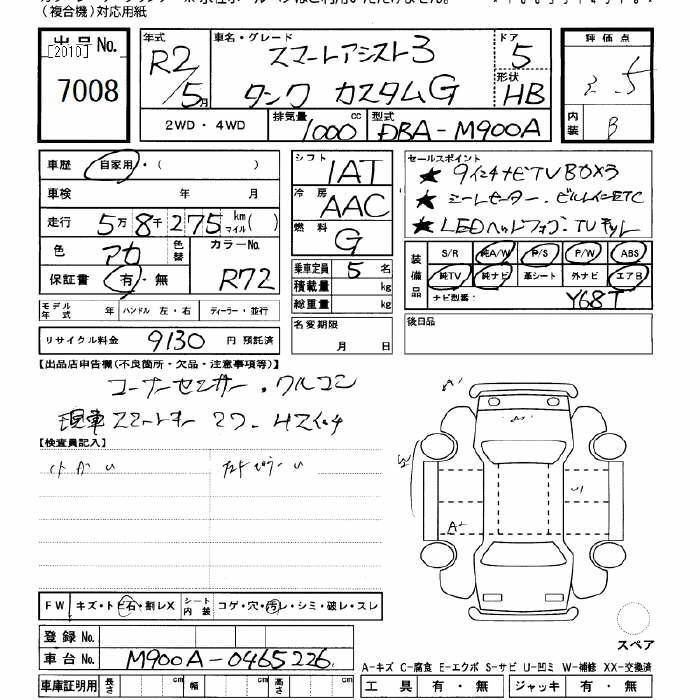 (複合機)対応用紙
出品 No. [2010] 7008
年式 R2/5月
車名・グレード スマートアシスト3 タンク カスタムG
ドア 5
形状 HB
評価点
内装 B
2WD・4WD 排気量 1000 cc 型式 DBA-M900A
車歴 自家用・( )
車検 年 月
走行 5万8千275 km マイル( )
色 アカ 色替 カラーNo. R72
保証書 有・無
モデル年式 年 ハンドル 左・右 ディーラー・並行
リサイクル料金 9130 円 預託済
シフト IAT
冷房 AAC
燃料 G
乗車定員 5 名
積載量 kg
総重量 kg
名変期限 月 日
セールスポイント
★ 9インチナビTV Bカメラ
★ シートヒーター・ビルトインETC
★ LEDヘッドフォグ・TVキット
装備品 S/R 純A/W P/S P/W ABS
純TV 純ナビ 革シート 外ナビ エアB
ナビ型番: Y68T
後日品
【出品店申告欄(不良箇所・欠品・注意事項等)】
コーナーセンサー・クルコン
現車スマートキー 2ケ
【検査員記入】
FW キズ・トビ石・割レX シート内装 コゲ・穴・汚レ・シミ・破レ・スレ
登録 No.
車台 No. M900A-0465226
車庫証明用 長さ cm 幅 cm 高さ cm
スペア
A-キズ C-腐食 E-エクボ S-サビ U-凹ミ W-補修 XX-交換済
工具 有・無 ジャッキ 有・無